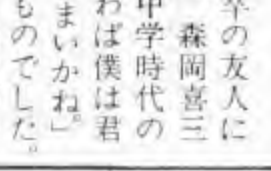 卒の友人に
森岡喜三
中学時代の
わば僕は君
まいかね。」
ものでした。